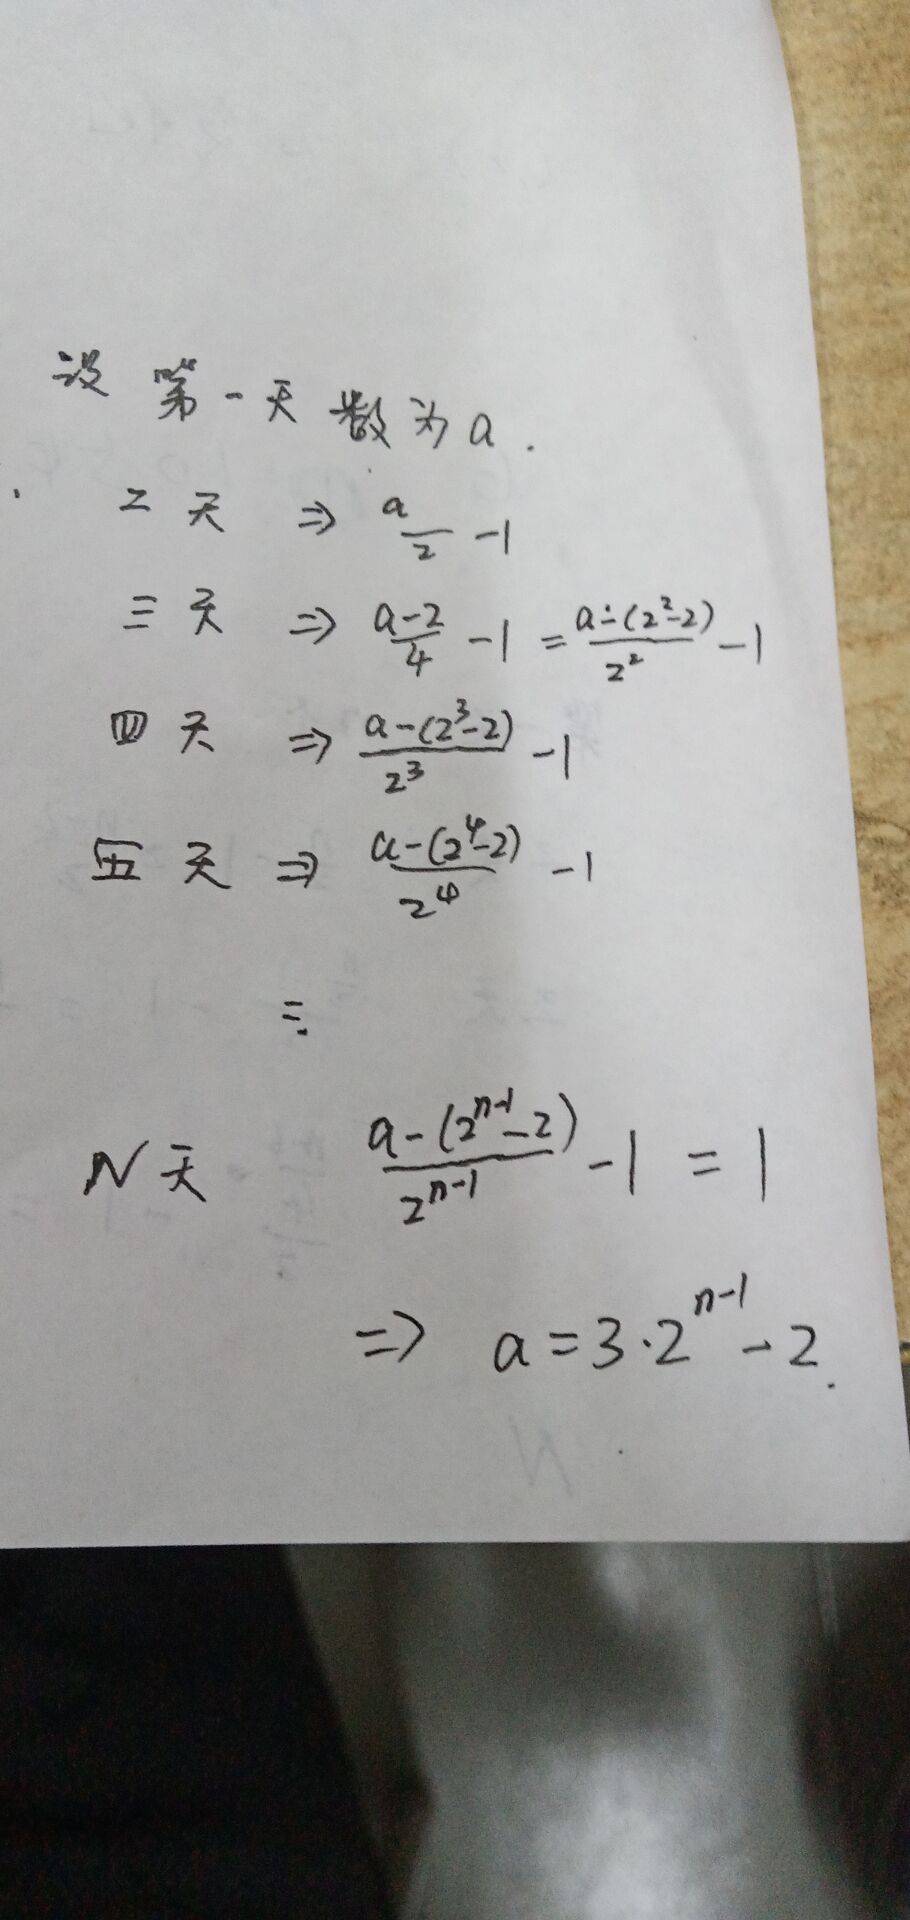 设第一天数为a.
二天 ⇒ a/2 -1
三天 ⇒ (a-2)/4 -1 = (a-(2²-2))/2² -1
四天 ⇒ (a-(2³-2))/2³ -1
五天 ⇒ (a-(2⁴-2))/2⁴ -1
⋮
N天 (a-(2ⁿ⁻¹-2))/2ⁿ⁻¹ -1 = 1
⇒ a=3·2ⁿ⁻¹-2.